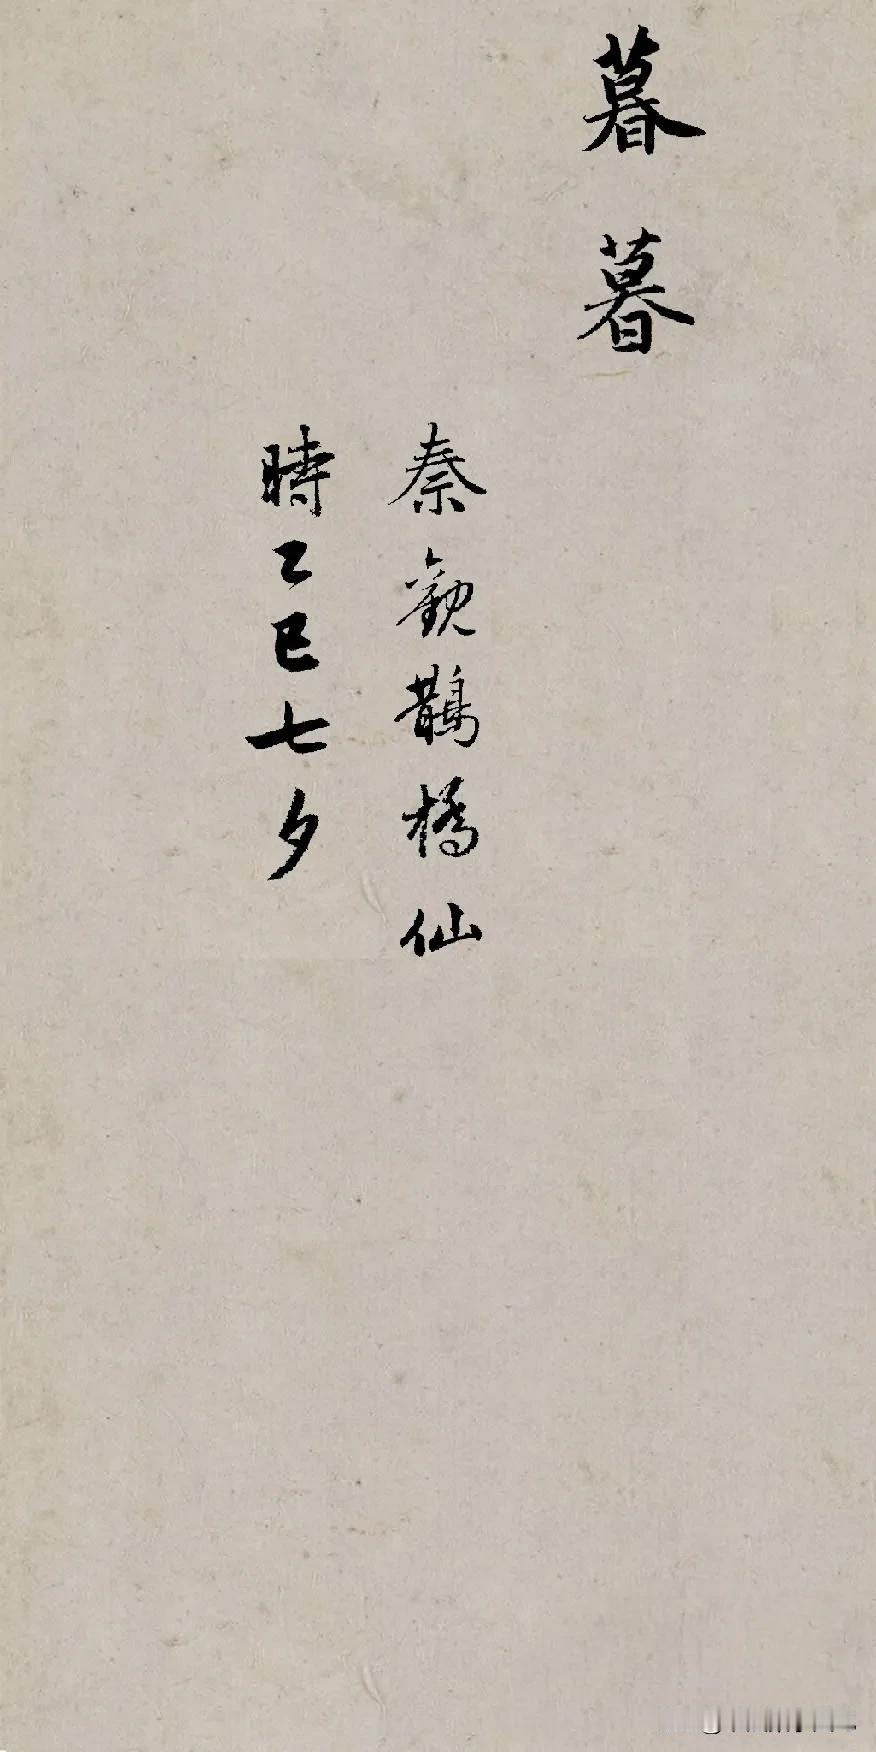 暮暮
秦觀鵲橋仙
時乙巳七夕